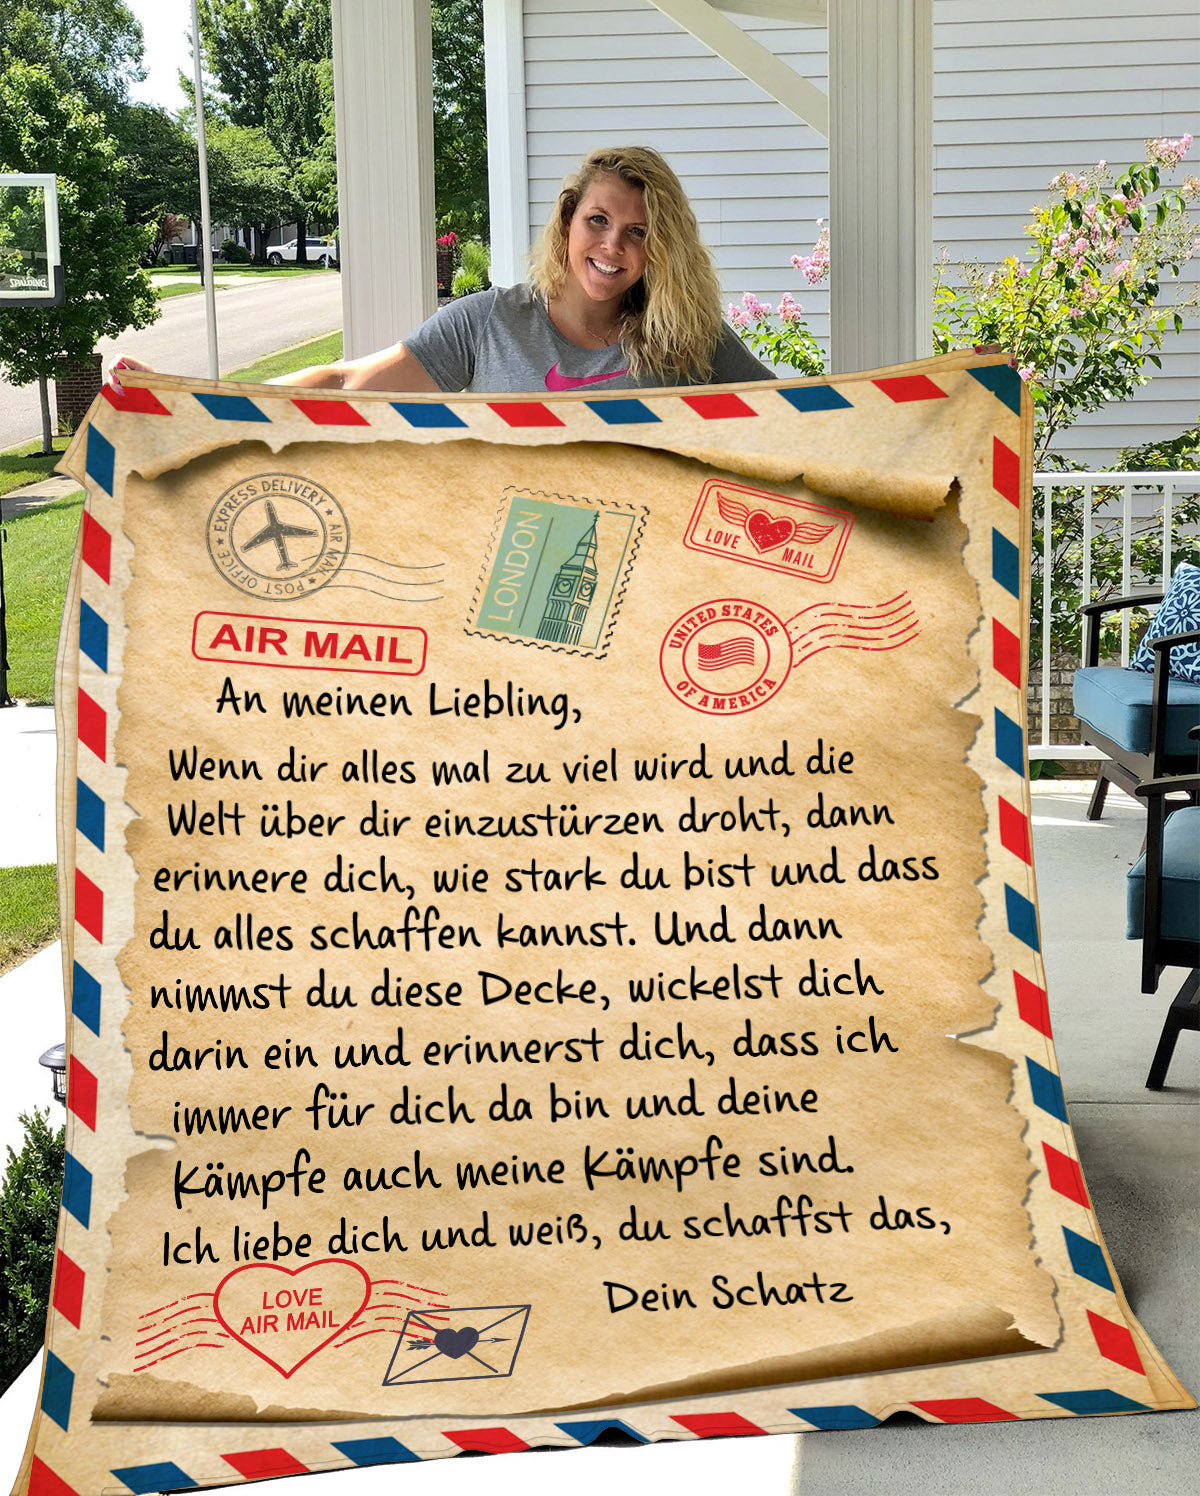 SPALDING
EXPRESS DELIVERY ★ AIR MAN ★ POST OFFICE ★
LONDON
LOVE MAIL
AIR MAIL
UNITED STATES
OF AMERICA
An meinen Liebling,
Wenn dir alles mal zu viel wird und die
Welt über dir einzustürzen droht, dann
erinnere dich, wie stark du bist und dass
du alles schaffen kannst. Und dann
nimmst du diese Decke, wickelst dich
darin ein und erinnerst dich, dass ich
immer für dich da bin und deine
Kämpfe auch meine Kämpfe sind.
Ich liebe dich und weiß, du schaffst das,
Dein Schatz
LOVE
AIR MAIL